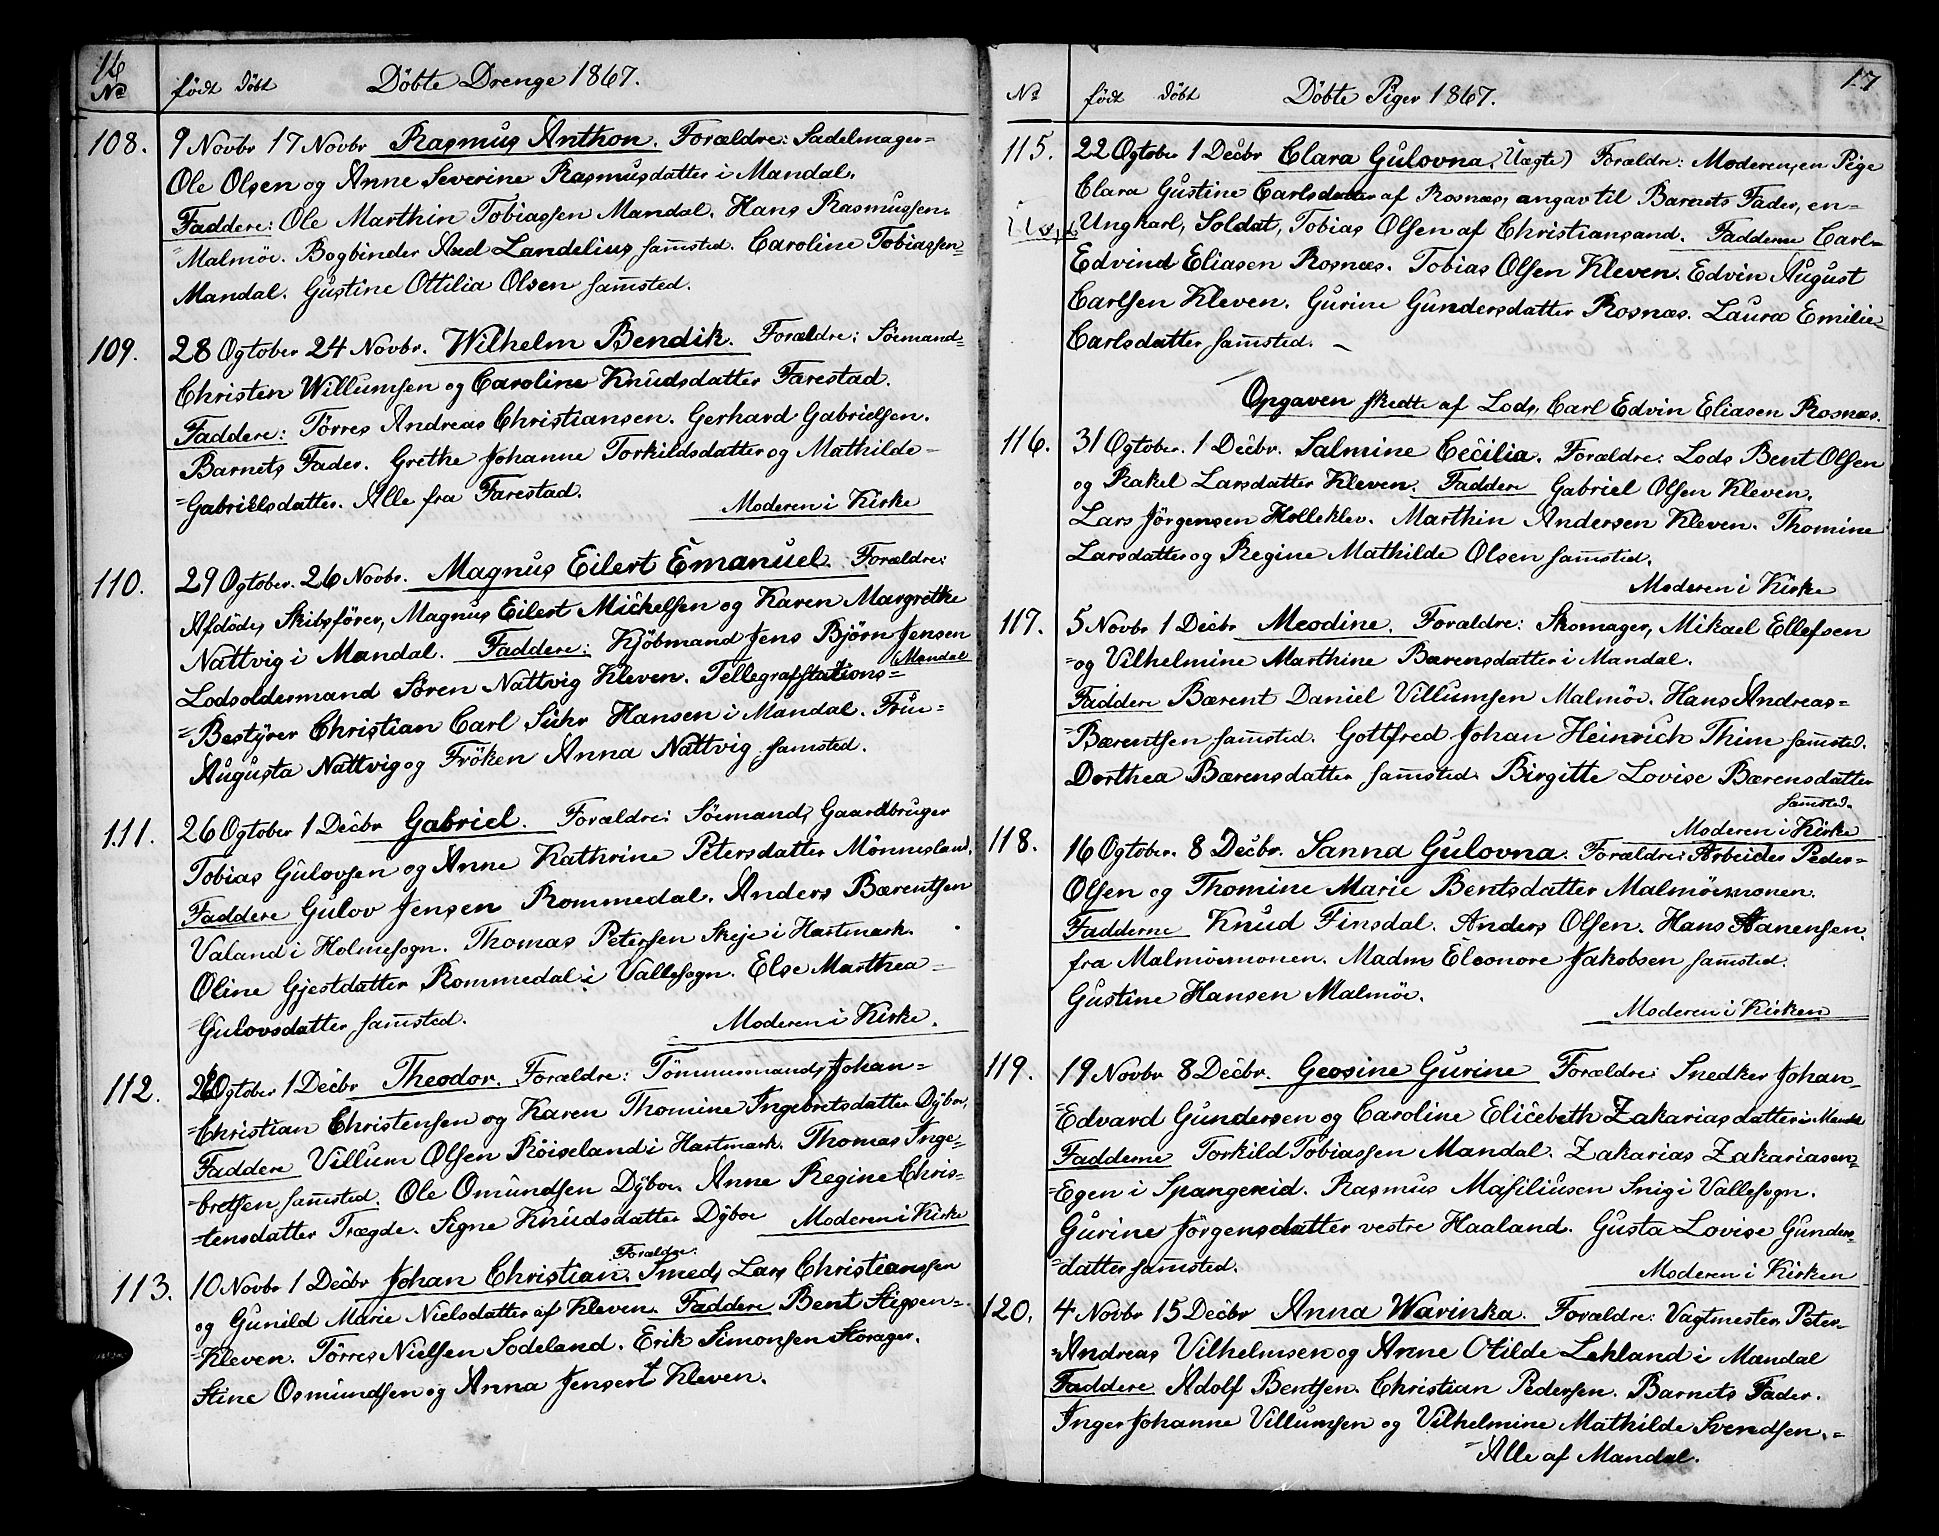 16
No født Döbt Döbte Drenge 1867.
108. 9 Novbr 17 Novbr Rasmus Anthon. Forældre: Sadelmager=
Ole Olsen og Anne Severine Rasmusdatter i Mandal.
Faddere: Ole Marthin Tobiassen Mandal. Hans Rasmussen=
=Malmöe. Bogbinder Axel Landelius samsted. Caroline Tobiassen=
Mandal. Gustine Ottilia Olsen samsted.
109. 28 Ogtober 24 Novbr. Wilhelm Bendik. Forældre: Söemand=
Christen Willumsen og Caroline Knudsdatter Farestad.
Faddere: Törres Andreas Christiansen. Gerhard Gabrielsen.
Barnets Fader. Grethe Johanne Torkildsdatter og Mathilde=
=Gabrielsdatter. Alle fra Farestad.
Moderen i Kirke
110. 29 Ogtober. 26 Novbr. Magnus Eilert Emanuel. Forældre:
Afdöde, Skibsförer, Magnus Eilert Mickelsen og Karen Margrethe
Nattvig i Mandal. Faddere: Kjöbmand Jens Björn Jensen
Mandal
Lodsoldermand Sören Nattvig Kleven. Tellegrafstations=
=Bestyrer Christian Carl Suhr Hansen i Mandal. Frue=
Augusta Nattvig og Fröken Anna Nattvig samsted.
111. 26 Ogtober 1 Decbr Gabriel. Forældre: Söemand, Gaardbruger
Tobias Gulovsen og Anne Kathrine Petersdatter Mönnesland.
Faddere Gulov Jensen Rommedal. Anders Bærentsen
Valand i Holmesogn. Thomas Petersen Skeje i Hartmark.
Oline Gjestdatter Rommedal i Vallesogn. Else Marthea=
=Gulovsdatter samsted.
Moderen i Kirke.
112. Ogtober 1 Decbr Theodor. Forældre: Tömmermand, Johan=
=Christian Christensen og Karen Thomine Ingebretsdatter Dybo.
Faddere Villum Olsen Röiseland i Hartmark. Thomas Inge=
bretsen samsted. Ole Omundsen Dyboe. Anne Regine Chris=
=tensdatter Trægde. Signe Knudsdatter Dyboe Moderen i Kirke
Forældre:
113. 10 Novbr 1 Decbr Johan Christian. Smed, Lars Christianssen
og Gunild Marie Nielsdatter af Kleven. Faddere Bent Stigsen=
=Kleven. Törres Nielsen Sodeland. Erik Simonsen Storager.
Stine Osmundsen og Anna Jensen Kleven.
17
No født Döbt Döbte Piger 1867.
115. 22 Ogtober 1 Decbr Clara Gulovna. (Uægte) Forældre: Moderen, en Pige
Clara Gustine Carlsdatter af Rosnæs, angav til Barnets Fader, en=
Ungkarl, Soldat, Tobias Olsen af Christiansand. Fadderne Carl=
Edvind Eliasen Rosnæs. Tobias Olsen Kleven. Edvin August
Carlsen Kleven. Gurine Gundersdatter Rosnæs. Laura Emilie=
Carlsdatter samsted. —
Opgaven skedte af Lods, Carl Edvin Eliasen Rosnæs.
116. 31 Ogtober. 1 Decbr. Salmine Cecilia. Forældre. Lods Bent Olsen
og Rakel Larsdatter Kleven. Faddere Gabriel Olsen Kleven.
Lars Jörgensen Holleklev. Marthin Andersen Kleven. Thomine
Larsdatter og Regine Mathilde Olsen samsted.
Moderen i Kirke
117. 5 Novbr 1 Decbr Meodine. Forældre: Skomager, Mikael Ellefsen
=og Vilhelmine Marthine Bærensdatter i Mandal.
Faddere Bærent Daniel Villumsen Malmöe. Hans Andreas=
=Bærentsen samsted. Gottfred Johan Heinrich Thime samsted.
Dorthea Bærensdatter samsted. Birgitte Lovise Bærensdatter
samsted.
Moderen i Kirke
118. 16 Ogtober. 8 Decbr. Sanna Gulovna. Forældre: Arbeider Peder=
Olsen og Thomine Marie Bentsdatter Malmöemonen.
Fadderne Knud Finsdal. Anders Olsen. Hans Aanensen.
fra Malmöemonen. Madm Eleonore Jakobsen samsted.
Gustine Hansen Malmöe.
Moderen i Kirken
119. 19 Novbr 8 Decbr. Geosine Gurine Forældre: Snedker Johan=
=Edvard Gundersen og Caroline Elicebeth Zakariasdatter i Mandal
Fadderne Torkild Tobiassen Mandal. Zakarias Zakariasen=
=Egen i Spangereid. Rasmus Masiliusen Snig i Vallesogn.
Gurine Jörgensdatter vestre Haaland. Gusta Lovise Gunders=
=datter samsted.
Moderen i Kirken
120. 4 Novbr 15 Decbr Anna Warinka. Forældre: Vagtmester, Peter=
=Andreas Vilhelmsen og Anne Otilde Lehland i Mandal
Faddere Adolf Bentsen. Christian Pedersen. Barnets Fader.
Inger Johanne Villumsen og Vilhelmine Mathilde Svendsen.=
=Alle af Mandal.